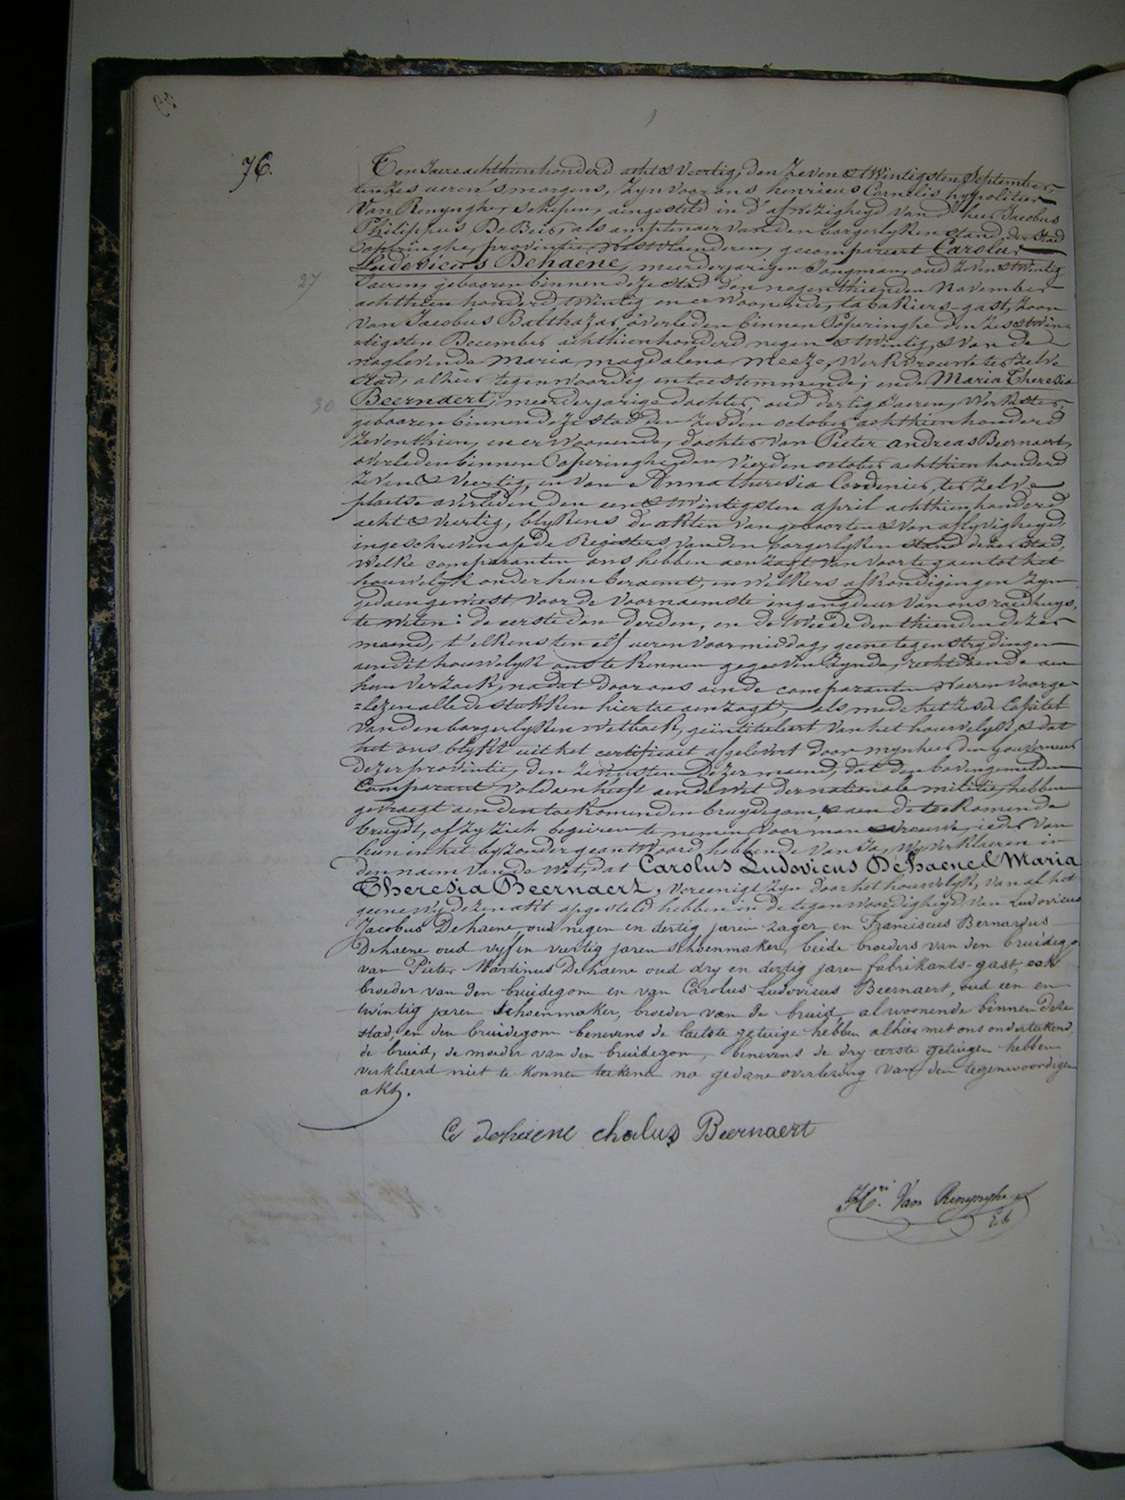 76.
Ten Jaere achthien honderd acht & Veertig, den Zeven & Twintigsten September
ten Zes ueren 's morgens, Zyn voor ons henricus Cornelis hypolitus
Van Renynghe, schepen, aengesteld in d' afwezigheyd van d' heer Jacobus
Philippus De Beir, als amptenaer van den borgerlyken stand, der stad
Poperinghe, provintie Westvlaenderen, gecompareert Carolus
Ludovicus Dehaene, meerderjarigen Jongman, oud Zeven & Twintig
27
Jaeren, gebooren binnen deze stad den negenthienden November
achthien honderd Twintig en er Woonende, tabakiers-gast, Zoon
Van Jacobus Balthazar, overleden binnen Poperinghe den Zes & Twin-
tigsten December achthienhonderd negen & Twintig, & Van de
nog levende Maria magdalena Meeze, Werkvrouwe ter Zelve
Stad, alhier tegenwoordig en toestemmende; ende Maria Theresia
Beernaert, meerderjarige dochter, oud dertig Jaeren, Werkster,
30
gebooren binnen deze stad den Zesden october achthienhonderd
Zeventhien, en er Woonende, dochter Van Pieter andreas Beernaert,
overleden binnen Poperinghe den Vierden october achthien honderd
Zeven & Veertig, en van Anna theresia Cordenier, ter Zelve
plaetse overleden den een & Twintigsten april achthienhonderd
acht & Veertig, blykens de akten van geboorten & van aflyvigheyd
ingeschreven op de Registers van den borgerlyken stand dezer stad,
Welke comparanten ons hebben aenzogt van voor te gaen tot het
houwelyk onder hun beraemt, en Welkers afkondigingen Zyn
gedaen geweest voor de voornaemste ingangdeur van ons raedhuys,
te Weten: de eerste den derden, en de Tweede den thienden dezer
maend, t'elkensten elf ueren voor middag, geene tegenstrydingen
aen dit houwelyk ons te kennen gegeven Zynde, recht doende aen
hun Verzoek, nadat door ons aen de comparanten Waeren voorge-
=lezen alle de stukken hier toe aenzogt, als mede het Zesde Capitel
van den borgerlyken Wetboek, geïntituleert Van het houwelyk, & dat
het ons blykt uit het certificaet afgelevert door mynheer den Gouverneur
dezer provintie, den Zevensten dezer maend, dat den bovengemelden
Comparant voldaen heeft aen de Wet der nationale militie, hebben
gevraegt aen den toekomenden bruydegom, & aen de toekomende
bruydt, of Zy Zich begeiren te nemen voor man & vrouwe, ieder van
hun in het byzonder geantwoord hebbende Van Ja, Wy verklaeren in
den naem van de Wet, dat Carolus Ludovicus Dehaene & Maria
Theresia Beernaert, Vereenigt Zyn door het houwelyk, van al het
geene wy dezen akt opgesteld hebben in de tegenwoordigheyd van Ludovicus
Jacobus Dehaene oud negen en dertig jaren zager en Franciscus Bernardus
Dehaene oud vyf en veertig jaren schoenmaker, beide broeders van den bruidegom
van Pieter Martinus Dehaene oud dry en dertig jaren fabrikants-gast, ook
broeder van den bruidegom en van Carolus Ludovicus Beernaert, oud een en
twintig jaren schoenmaker, broeder van de bruid, al woonende binnen deze
stad, en den bruidegom benevens de laetste getuige hebben alhier met ons onderteekend,
de bruid, de moeder van den bruidegom, benevens de dry eerste getuigen hebben
verklaerd niet te konnen teekenen na gedane overlezing van den tegenwoordigen
akt.
C dehaene charlus Beernaert
H.ri Van Renynghe